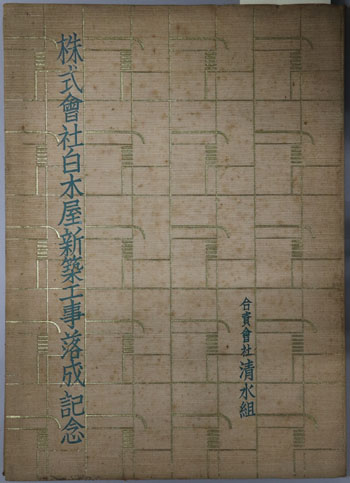 株式會社白木屋新築工事落成記念
合資會社 清水組